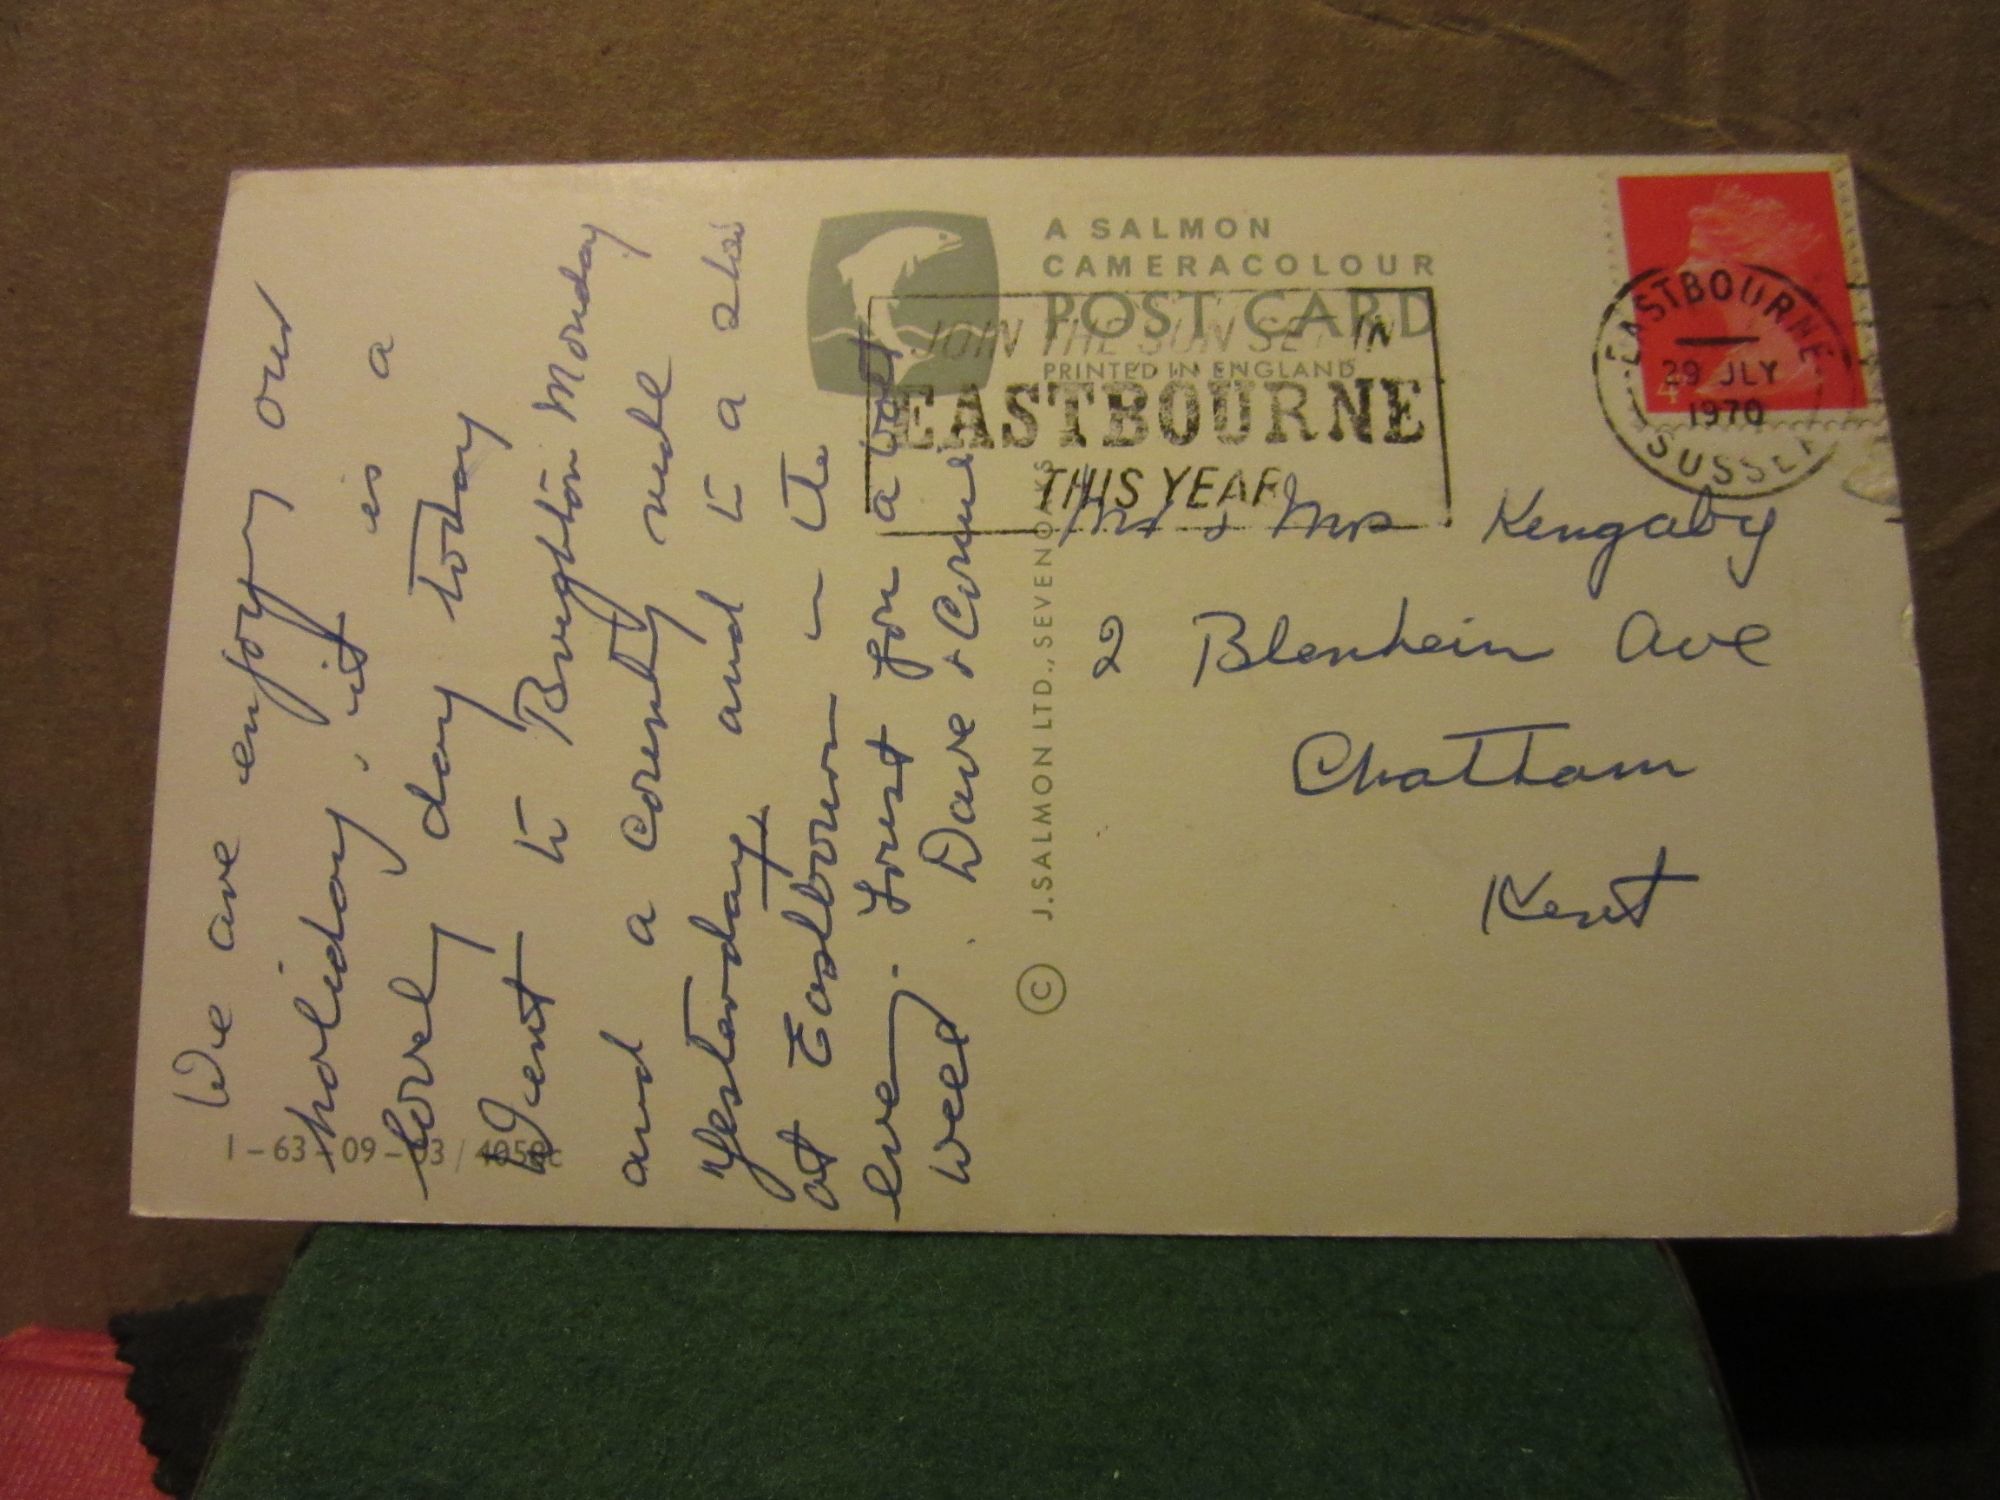 We are enjoy our
holiday, it is a
lovel day today
Went to Brighton Monday
and a County ride
Yesterday, and to a
at Eastbourn in the
eve. Lovely for a
week. Dave & Connie
A SALMON
CAMERACOLOUR
POST CARD
PRINTED IN ENGLAND
JOIN THE SUN SET IN
EASTBOURNE
THIS YEAR
EASTBOURNE
29 JLY
1970
SUSSEX
4
Mr & Mrs Kengaby
2 Blenheim Ave
Chatham
Kent
© J. SALMON LTD., SEVENOAKS
1-63-09-03/4058c